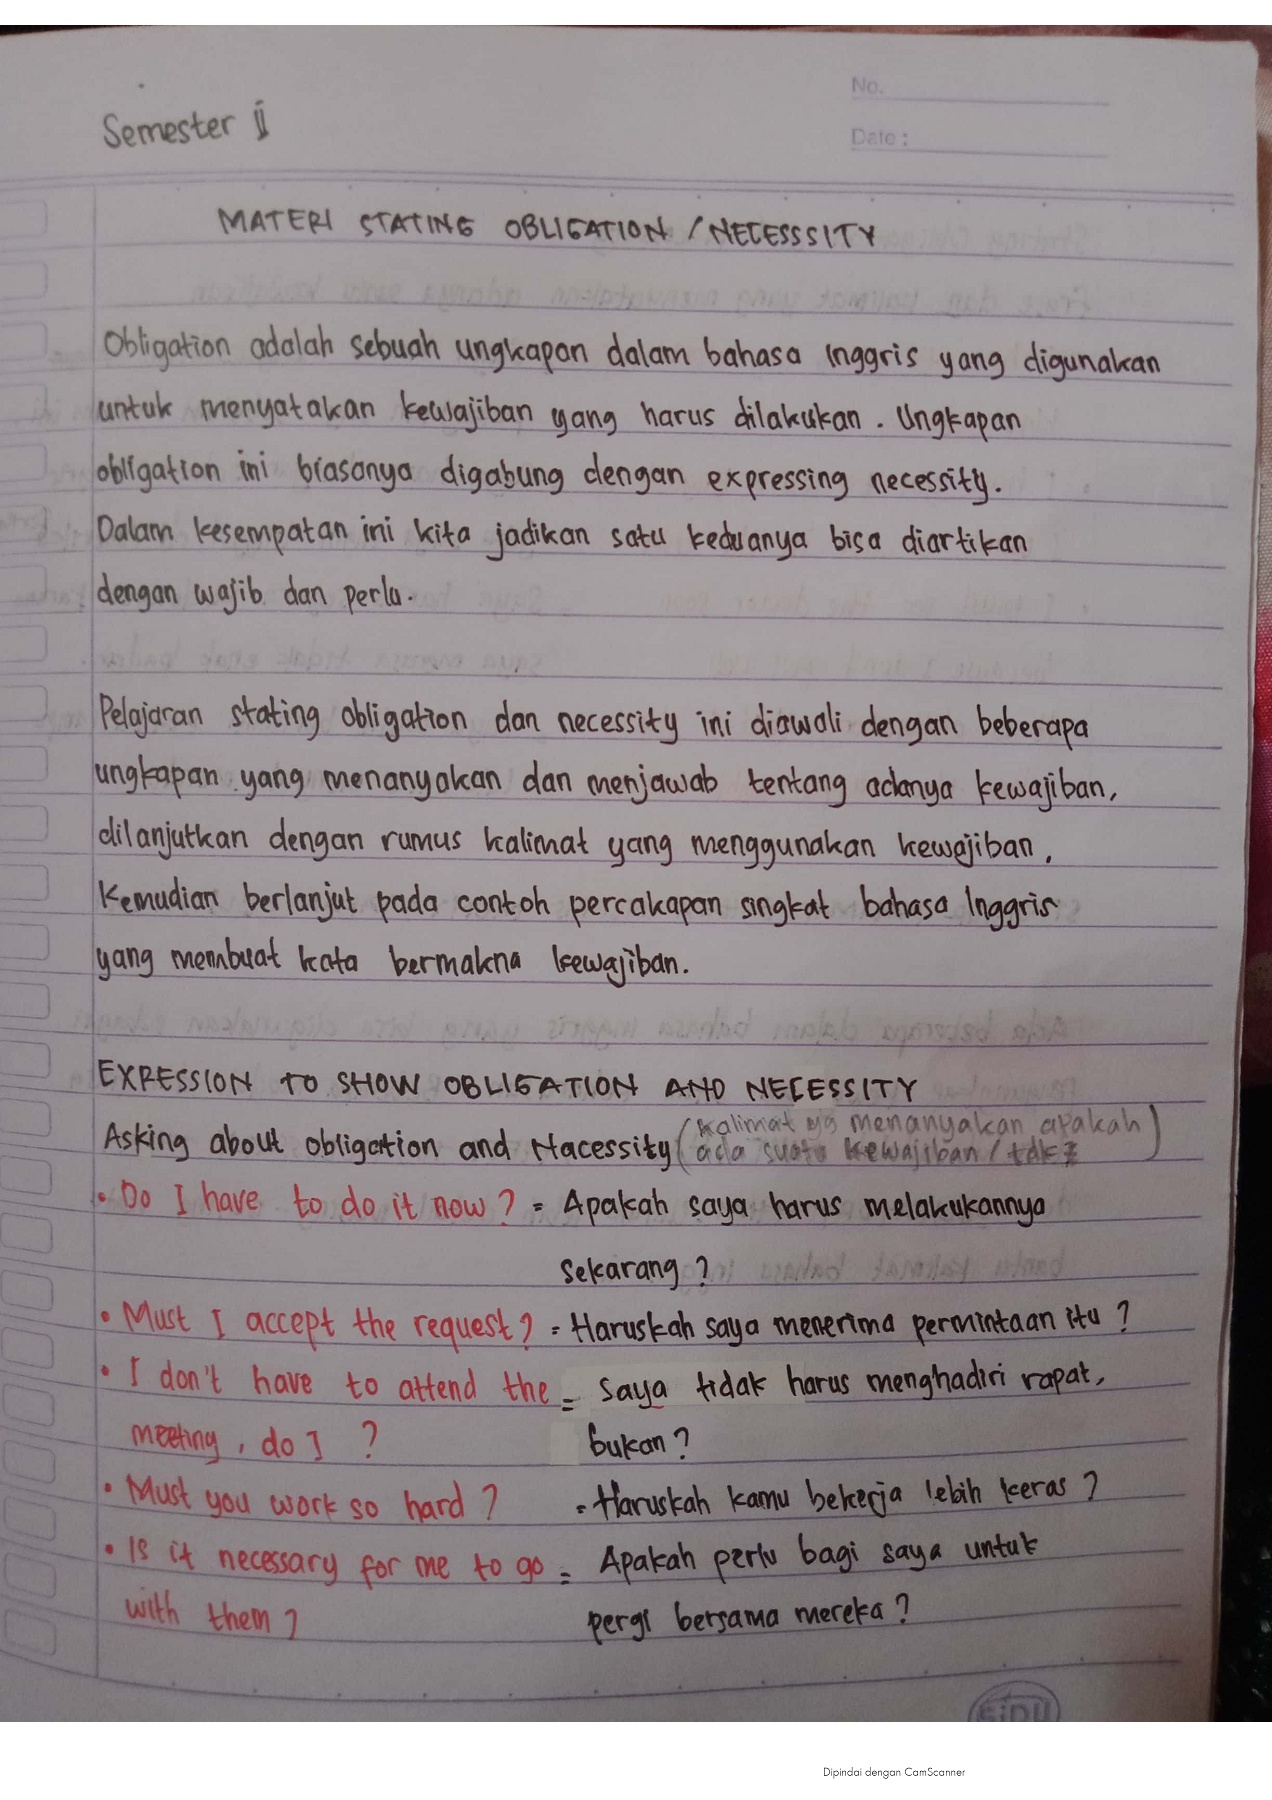 No.
Semester II
Date :
MATERI STATING OBLIGATION / NECESSSITY
Obligation adalah sebuah ungkapan dalam bahasa Inggris yang digunakan
untuk menyatakan kewajiban yang harus dilakukan. Ungkapan
obligation ini biasanya digabung dengan expressing necessity.
Dalam kesempatan ini kita jadikan satu keduanya bisa diartikan
dengan wajib dan perlu.
Pelajaran stating obligation dan necessity ini diawali dengan beberapa
ungkapan yang menanyakan dan menjawab tentang adanya kewajiban,
dilanjutkan dengan rumus kalimat yang menggunakan kewajiban,
Kemudian berlanjut pada contoh percakapan singkat bahasa Inggris
yang membuat kata bermakna kewajiban.
EXPRESSION TO SHOW OBLIGATION AND NECESSITY
Asking about obligation and Nacessity (kalimat yg menanyakan apakah
ada suatu kewajiban / tdk)
• Do I have to do it now? = Apakah saya harus melakukannya
sekarang?
• Must I accept the request? = Haruskah saya menerima permintaan itu?
• I don't have to attend the = saya tidak harus menghadiri rapat,
meeting, do I ? bukan?
• Must you work so hard? = Haruskah kamu bekerja lebih keras?
• Is it necessary for me to go = Apakah perlu bagi saya untuk
with them? pergi bersama mereka?
SIDU
Dipindai dengan CamScanner